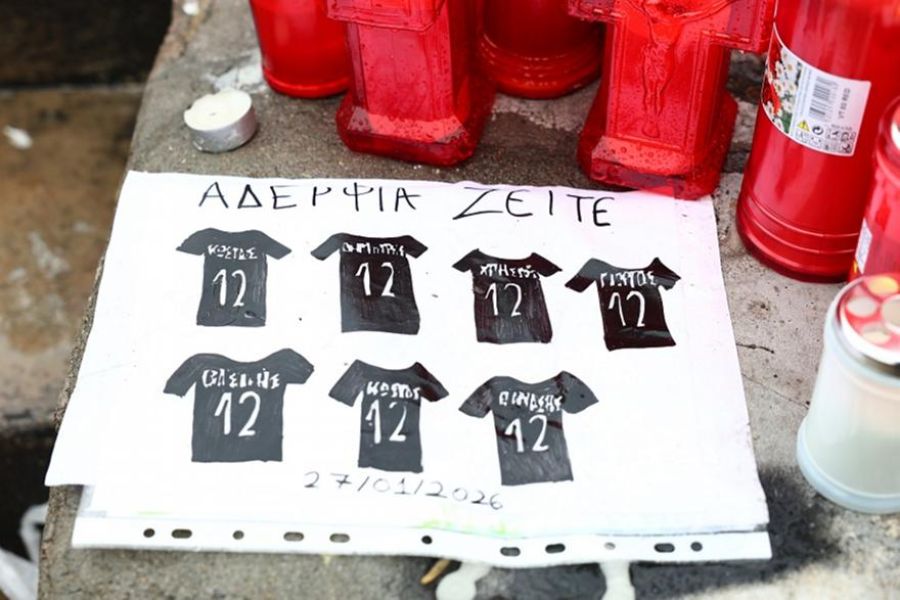 ΑΔΕΡΦΙΑ ΖΕΙΤΕ
ΚΩΣΤΑΣ
12
ΔΗΜΗΤΡΗΣ
12
12
12
ΒΑΣΙΛΗΣ
12
ΚΩΣΤΑΣ
12
12
27/01/2026